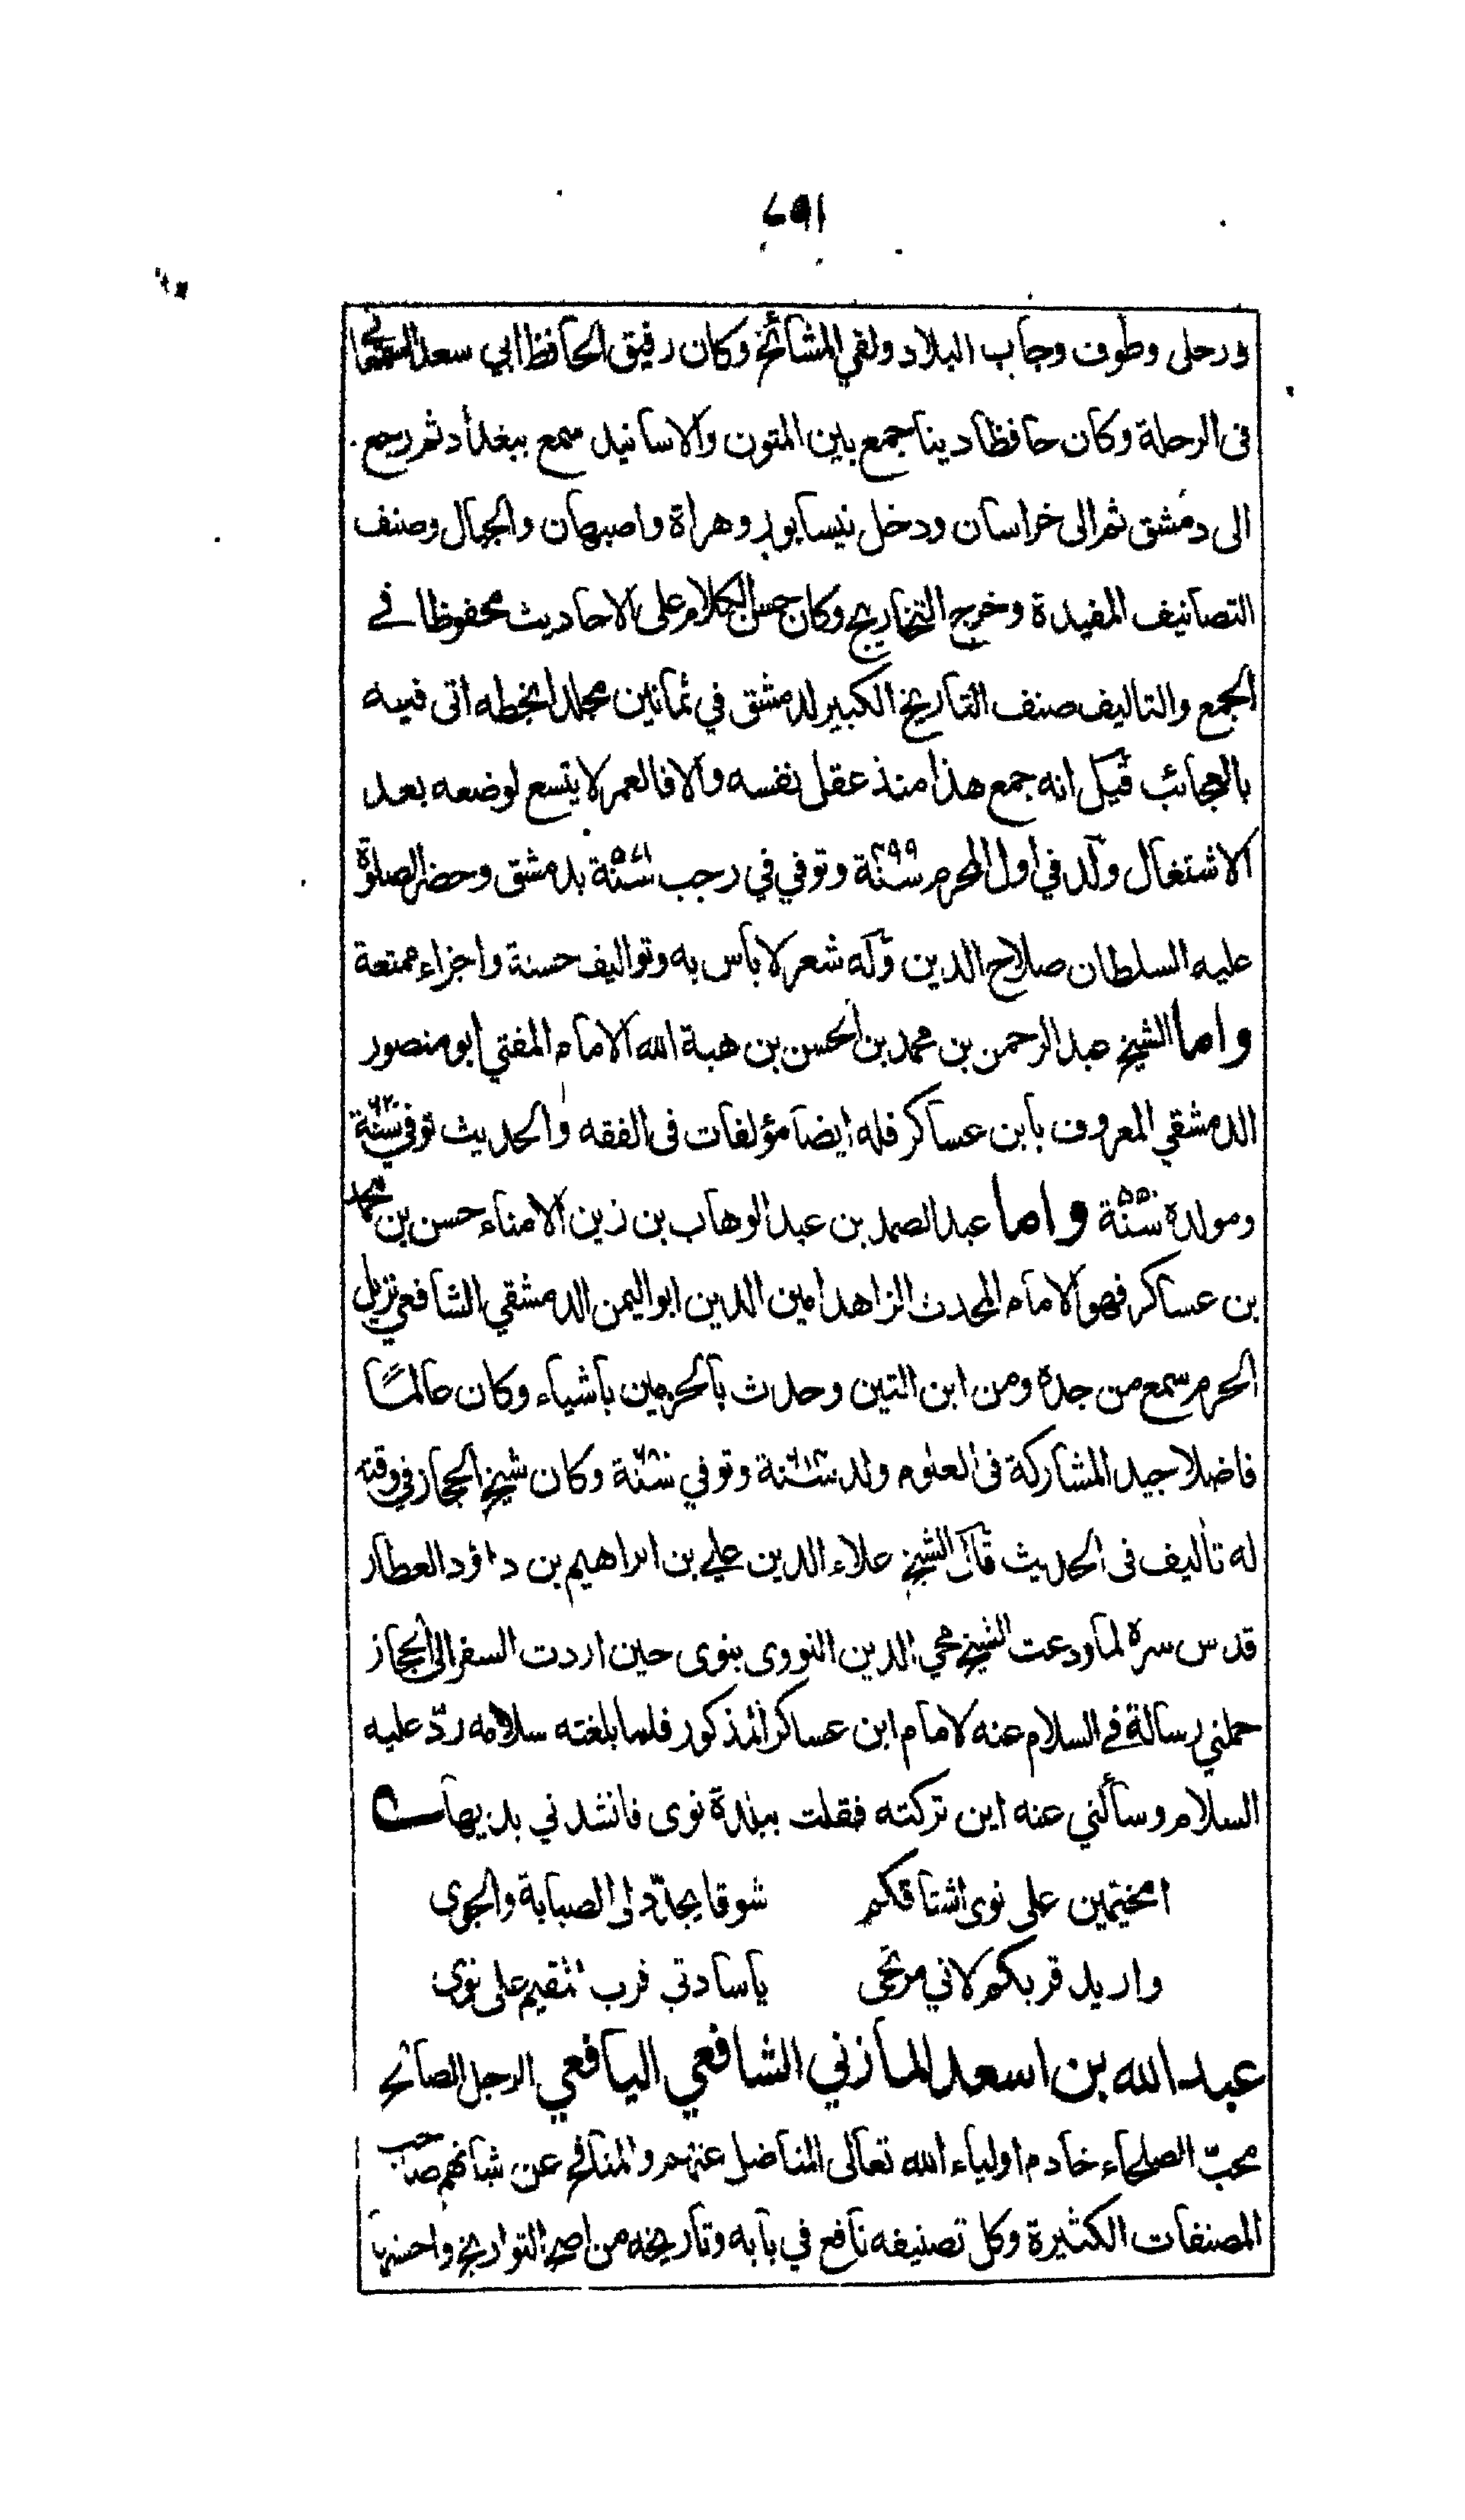 ورحل وطوف وجاب البلاد ولقي المشائخ وكان رفيق الحافظ ابي سعد السمعاني
فى الرحلة وكان حافظا دينا جمع بين المتون والاسانيد سمع ببغداد ثم رجع
الى دمشق ثم الى خراسان ودخل نيسابور وهراة واصبهان والجبال وصنف
التصانيف المفيدة وخرج التخاريج وكان حسن الكلام على الاحاديث محفوظا في
الجمع والتاليف صنف التاريخ الكبير لدمشق في ثمانين مجلدا بخطه اتى فيه
بالعجائب قيل انه جمع هذا منذ عقل نفسه والا فالعمر لا يتسع لوضعه بعد
الاشتغال ولد في اول المحرم سنة ٤٩٩ وتوفي في رجب سنة ٥٧١ بدمشق وحضر الصلوة
عليه السلطان صلاح الدين وله شعر لا باس به وتواليف حسنة واجزاء ممتعة
واما الشيخ عبد الرحمن بن محمد بن الحسن بن هبة الله الامام المفتي ابو منصور
الدمشقي المعروف بابن عساكر فله ايضا مؤلفات فى الفقه والحديث توفي سنة ٦٢٠
ومولده سنة ٥٥٠ واما عبد الصمد بن عبد الوهاب بن زين الامناء حسن بن محمد
بن عساكر فهو الامام المحدث الزاهد امين الدين ابو اليمن الدمشقي الشافعي نزيل
الحرم سمع من جده ومن ابن التين وحدث بالحرمين باشياء وكان عالمًا
فاضلا جيد المشاركة فى العلوم ولد سنة ٦١٤ وتوفي سنة ٦٨٠ وكان شيخ الحجاز في وقته
له تأليف فى الحديث قال الشيخ علاء الدين علي بن ابراهيم بن داؤد العطار
قدس سره لما ودعت الشيخ محي الدين النووى بنوى حين اردت السفر الى الحجاز
حملني رسالة في السلام عنه لامام ابن عساكر المذكور فلما بلغته سلامه ردّ عليه
السلام وسألني عنه اين تركته فقلت ببلدة نوى فانشدني بديها
امخيمين على نوى اشتاقكم شوقا يجدّد لى الصبابة والجوى
واريد قربكم لاني مرتجى يا سادتي قرب المقيم على نوى
عبد الله بن اسعد المازني الشافعي اليافعي الرجل الصالح
محبّ الصلحاء خادم اولياء الله تعالى المناضل عنهم والمنافح عن شانهم صاحب
المصنفات الكثيرة وكل تصنيفه نافع في بابه وتاريخه من اصح التواريخ واحسنها